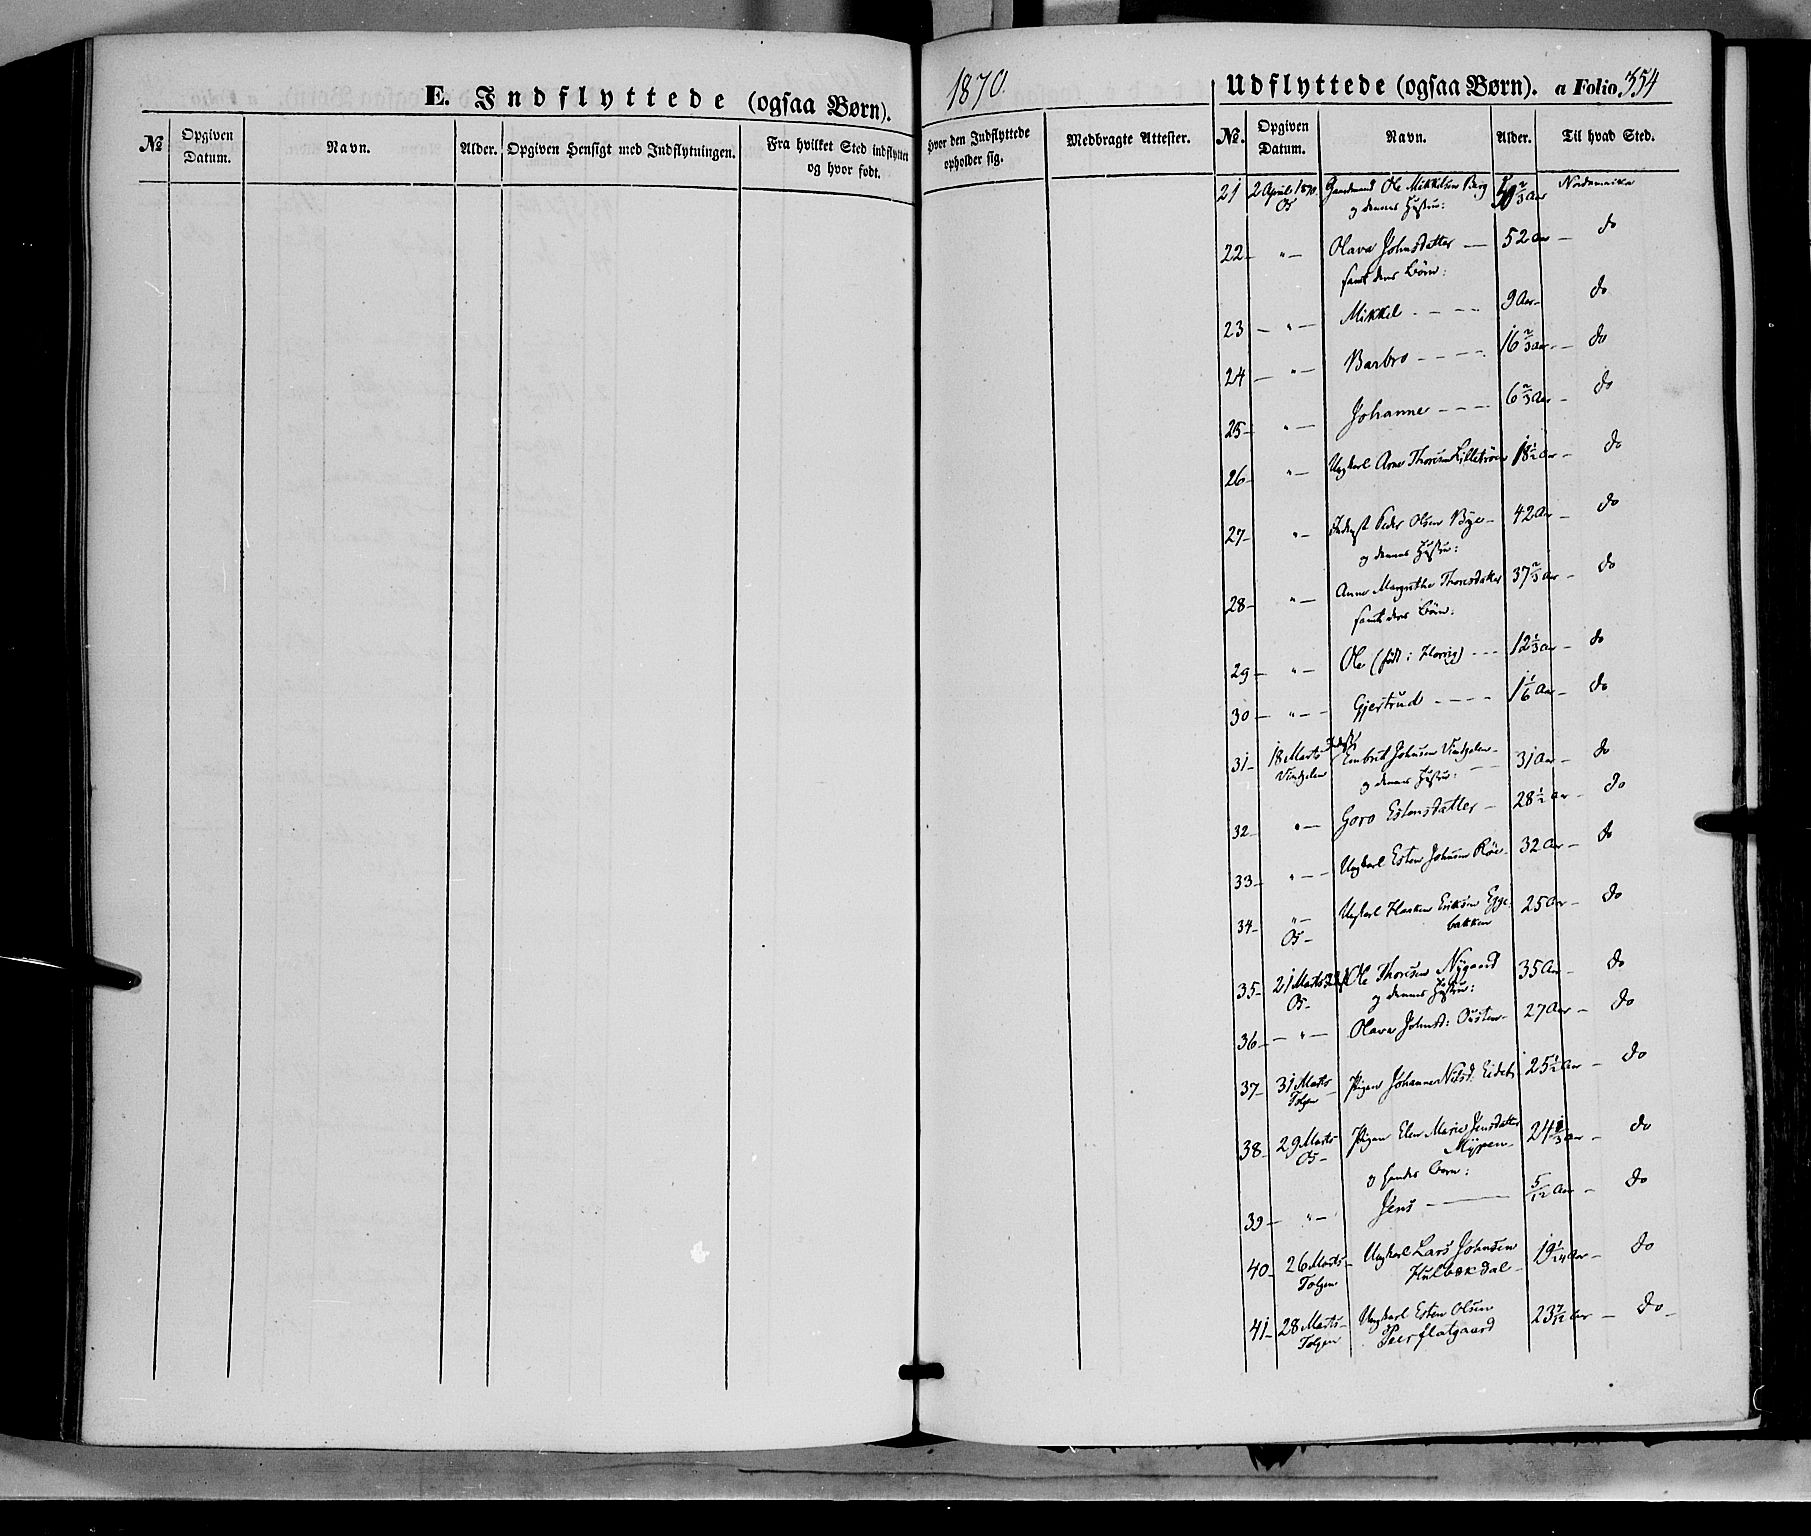 E. Indflyttede (ogsaa Børn).
1870.
Udflyttede (ogsaa Børn). a Folio 354
№ Opgiven Datum. Navn. Alder. Opgiven Hensigt med Indflytningen. Fra hvilket Sted indflyttet og hvor født.
Hvor den Indflyttede opholder sig. Medbragte Attester.
№. Opgiven Datum. Navn. Alder. Til hvad Sted.
21 2 April 1870. Gaardmand Ole Mikkelsen Berg 2/3 Aar Nordamerika
Os og dennes Hustru:
22 - " - Olava Johnsdatter - 52 Aar - do
samt deres Børn:
23 - " - Mikkel - - - - 9 Aar - do
24 - " - Barbro - - - - 16 2/3 Aar - do
25 - " - Johanne - - - 6 2/3 Aar - do
26 - " - Ungkarl Arne Thoresen Lilletrøen 18 1/2 Aar - do
27 - " - Inderst Peder Olsen Bye - 42 Aar - do
og dennes Hustru:
28 - " - Anne Margrethe Thoresdatter 37 2/3 Aar - do
samt deres Børn:
29 - " - Ole (født i ) - - - 12 1/3 Aar - do
30 - " - Gjertrud - - - - 1 1/6 Aar - do
31 - 18 Marts Inderst Embret Johnsen Vintgelen - 31 Aar - do
Vintgelen og dennes Hustru: -
32 - " - Goro Estensdatter - 28 1/2 Aar - do
33 - " - Ungkarl Esten Johnsen Røe - 32 Aar - do
34 - " - Ungkarl Haaken Eriksen Egge- 25 Aar - do
Os - bakken
35 - 21 Marts Inderst Ole Thoresen Nygaard 35 Aar - do
Os - og dennes Hustru:
36 - " - Olava Johnsd: Ousten - 27 Aar - do
37 - 31 Marts Pigen Johanne Nilsd: Eidet 25 1/2 Aar - do
Tolgen
38 - 29 Marts - Pigen Elen Marie Jensdatter 24 1/3 Aar - do
Os - Myren -
og hendes Barn:
39 - " - Jens - 5/12 Aar - do
40 - 26 Marts - Ungkarl Lars Johnsen 19 1/24 Aar - do
Tolgen Hulbækdal -
41 - 28 Marts - Ungkarl Esten Olsen 23 7/12 Aar - do -
Tolgen